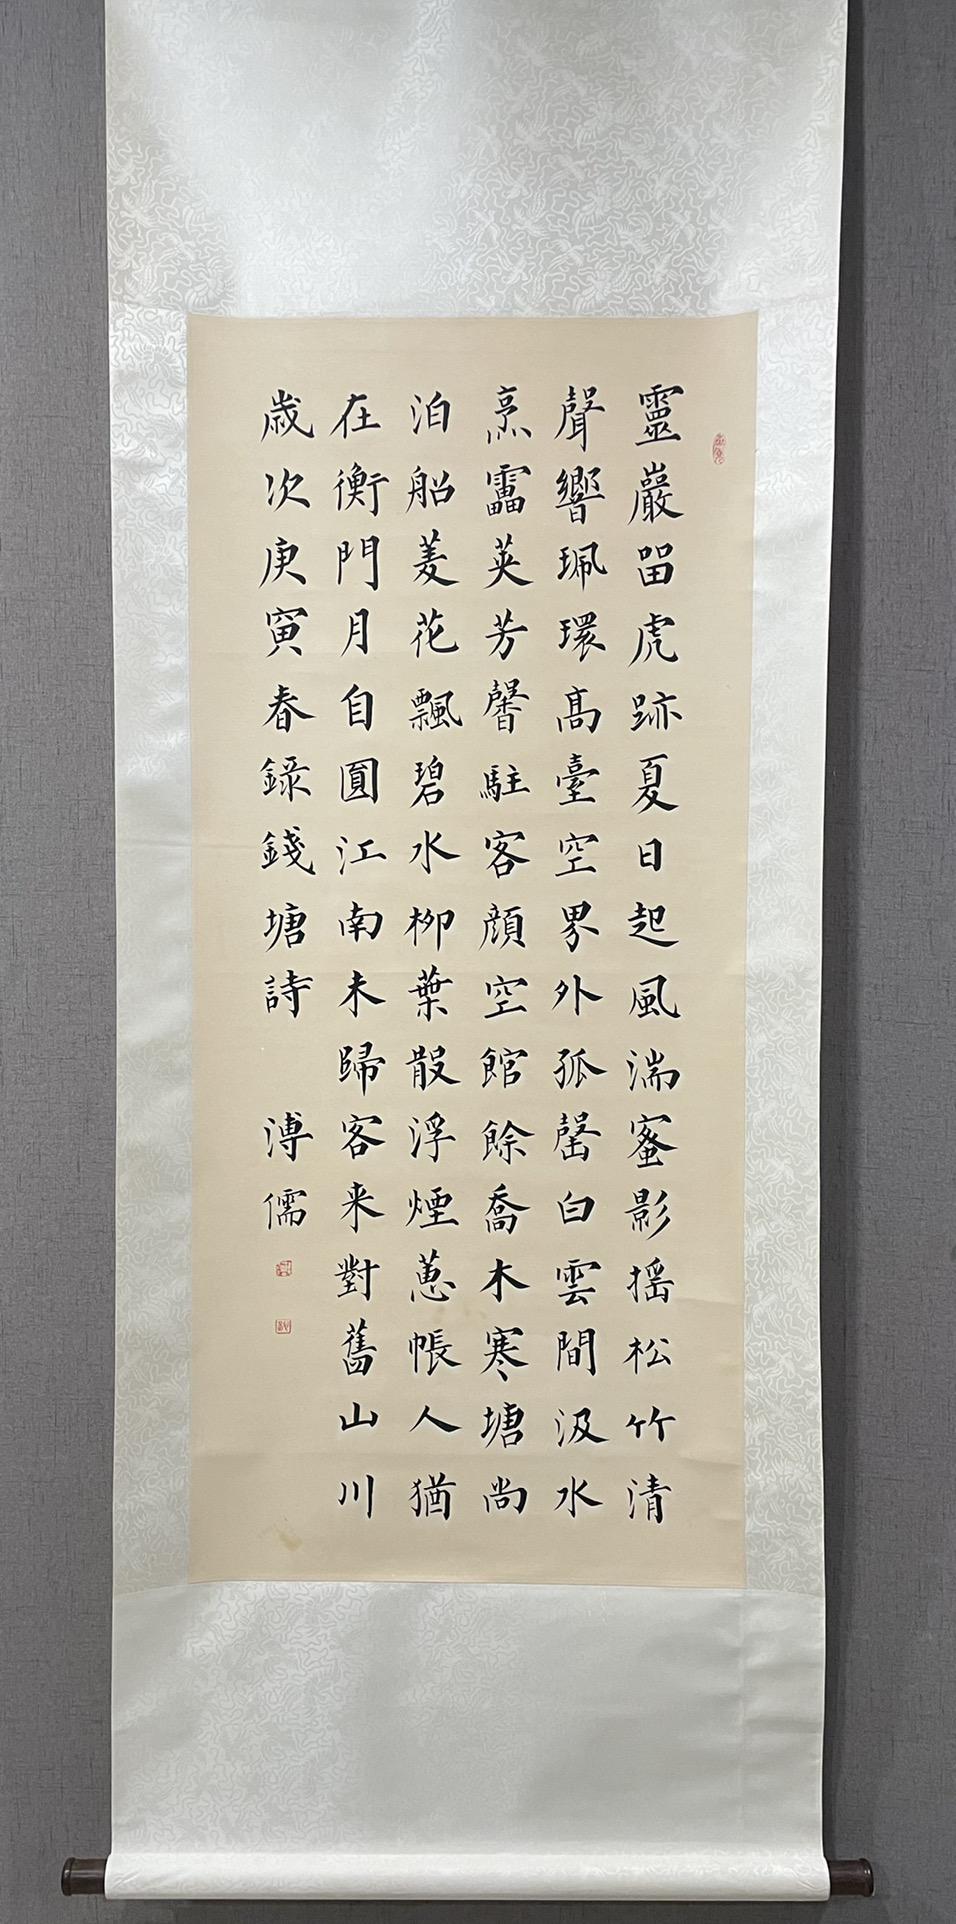 靈巖畱虎跡夏日起風湍蜜影揺松竹清
聲響珮環髙臺空界外孤罄白雲間汲水
烹靁英芳馨駐客顔空館餘喬木寒塘尚
泊船菱花飄碧水柳葉散浮煙蕙帳人猶
在衡門月自圓江南未歸客来對舊山川
歳次庚寅春錄錢塘詩 溥儒